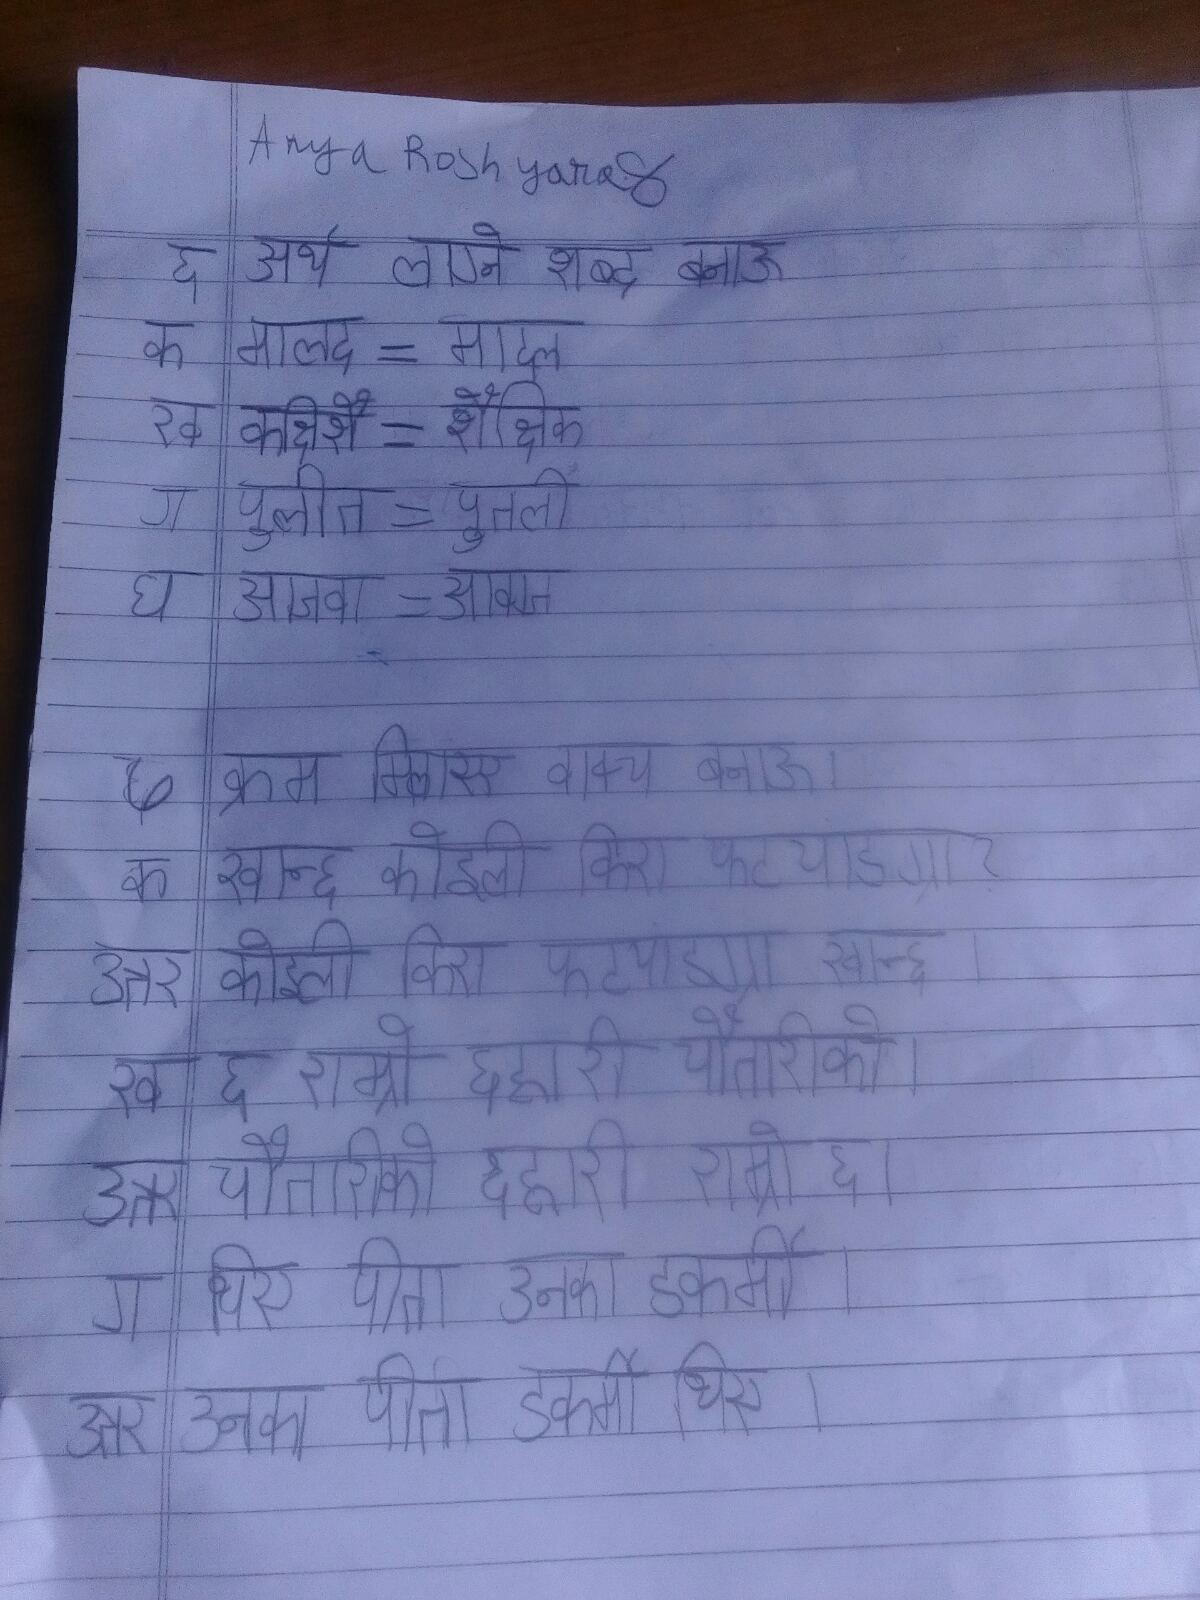 Anya Roshyara
६ अर्थ लाग्ने शब्द बनाऊ
क मालद = मादल
ख कक्षिशै = शैक्षिक
ग पुलीत = पुतली
घ आजवा = आवाज
७ क्रम मिलाएर वाक्य बनाऊ।
क खान्छ कोइली किरा फटयाङग्रा?
उत्तर कोइली किरा फटयाङग्रा खान्छ ।
ख छ राम्रो छहारी चौतारिको।
उत्तर चौतारिको छहारी राम्रो छ।
ग थिए पीता उनका डकर्मी ।
उत्तर उनका पीता डकर्मी थिए ।